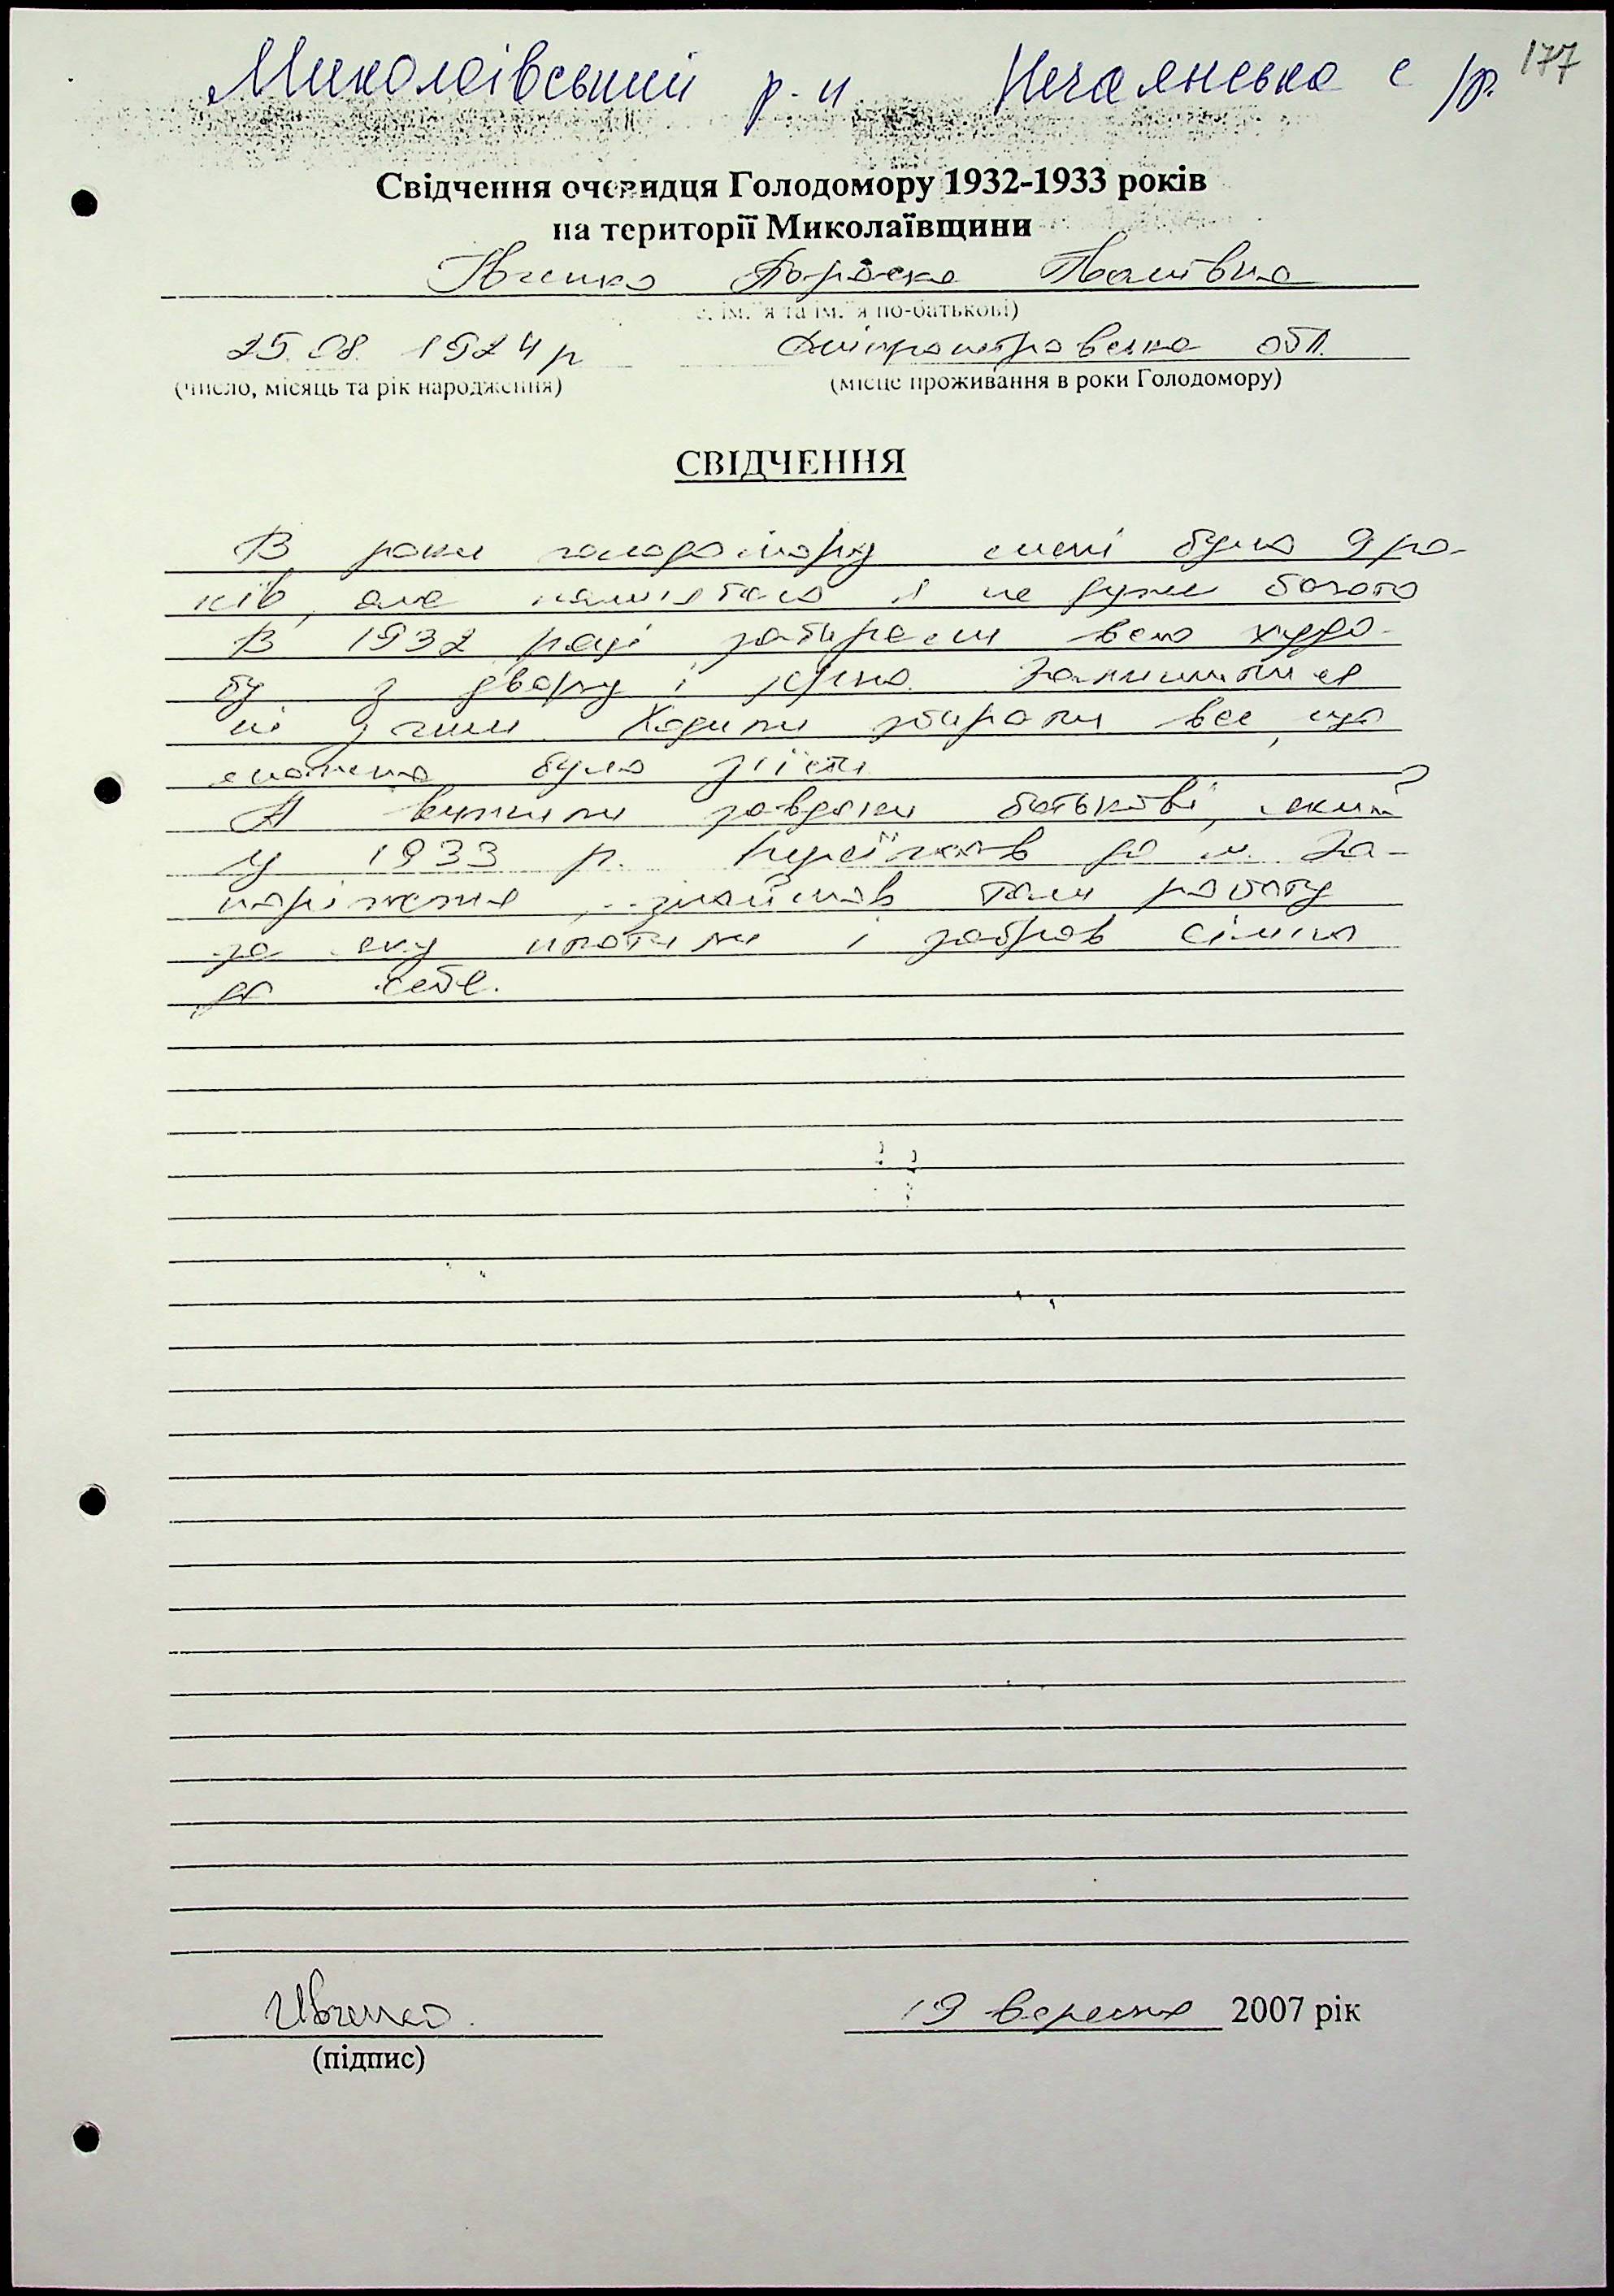 Миколаївський р-н Нечаянська с/р. 177
Свідчення очевидця Голодомору 1932-1933 років
на території Миколаївщини
Івченко Параска Панівна
ім."я та ім."я по-батькові)
25.08. 1924 р Дніпропетровська обл.
(число, місяць та рік народження) (місце проживання в роки Голодомору)
СВІДЧЕННЯ
В роки голодомору мені було 9 ро-
ків, але пам'ятаю я не дуже багато
В 1932 році забирали всю худо-
бу з двору і зерно. Залишилися
ні з чим. Ходили збирали все, що
можна було з'їсти
А вижили завдяки батькові, який
у 1933 р. переїхав до м. За-
поріжжя, знайшов там роботу
за яку платили і забрав сім'ю
до себе.
Ивченко 19 вересня 2007 рік
(підпис)